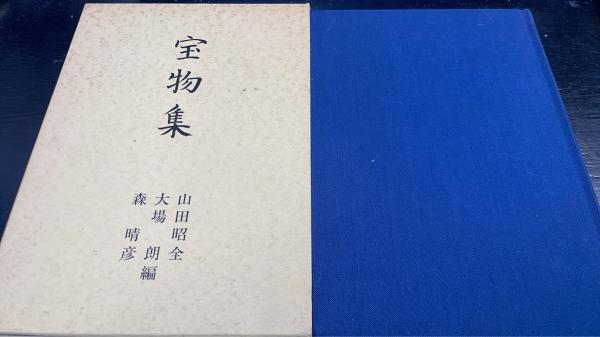 宝物集
山田昭全
大場朗
森晴彦
編